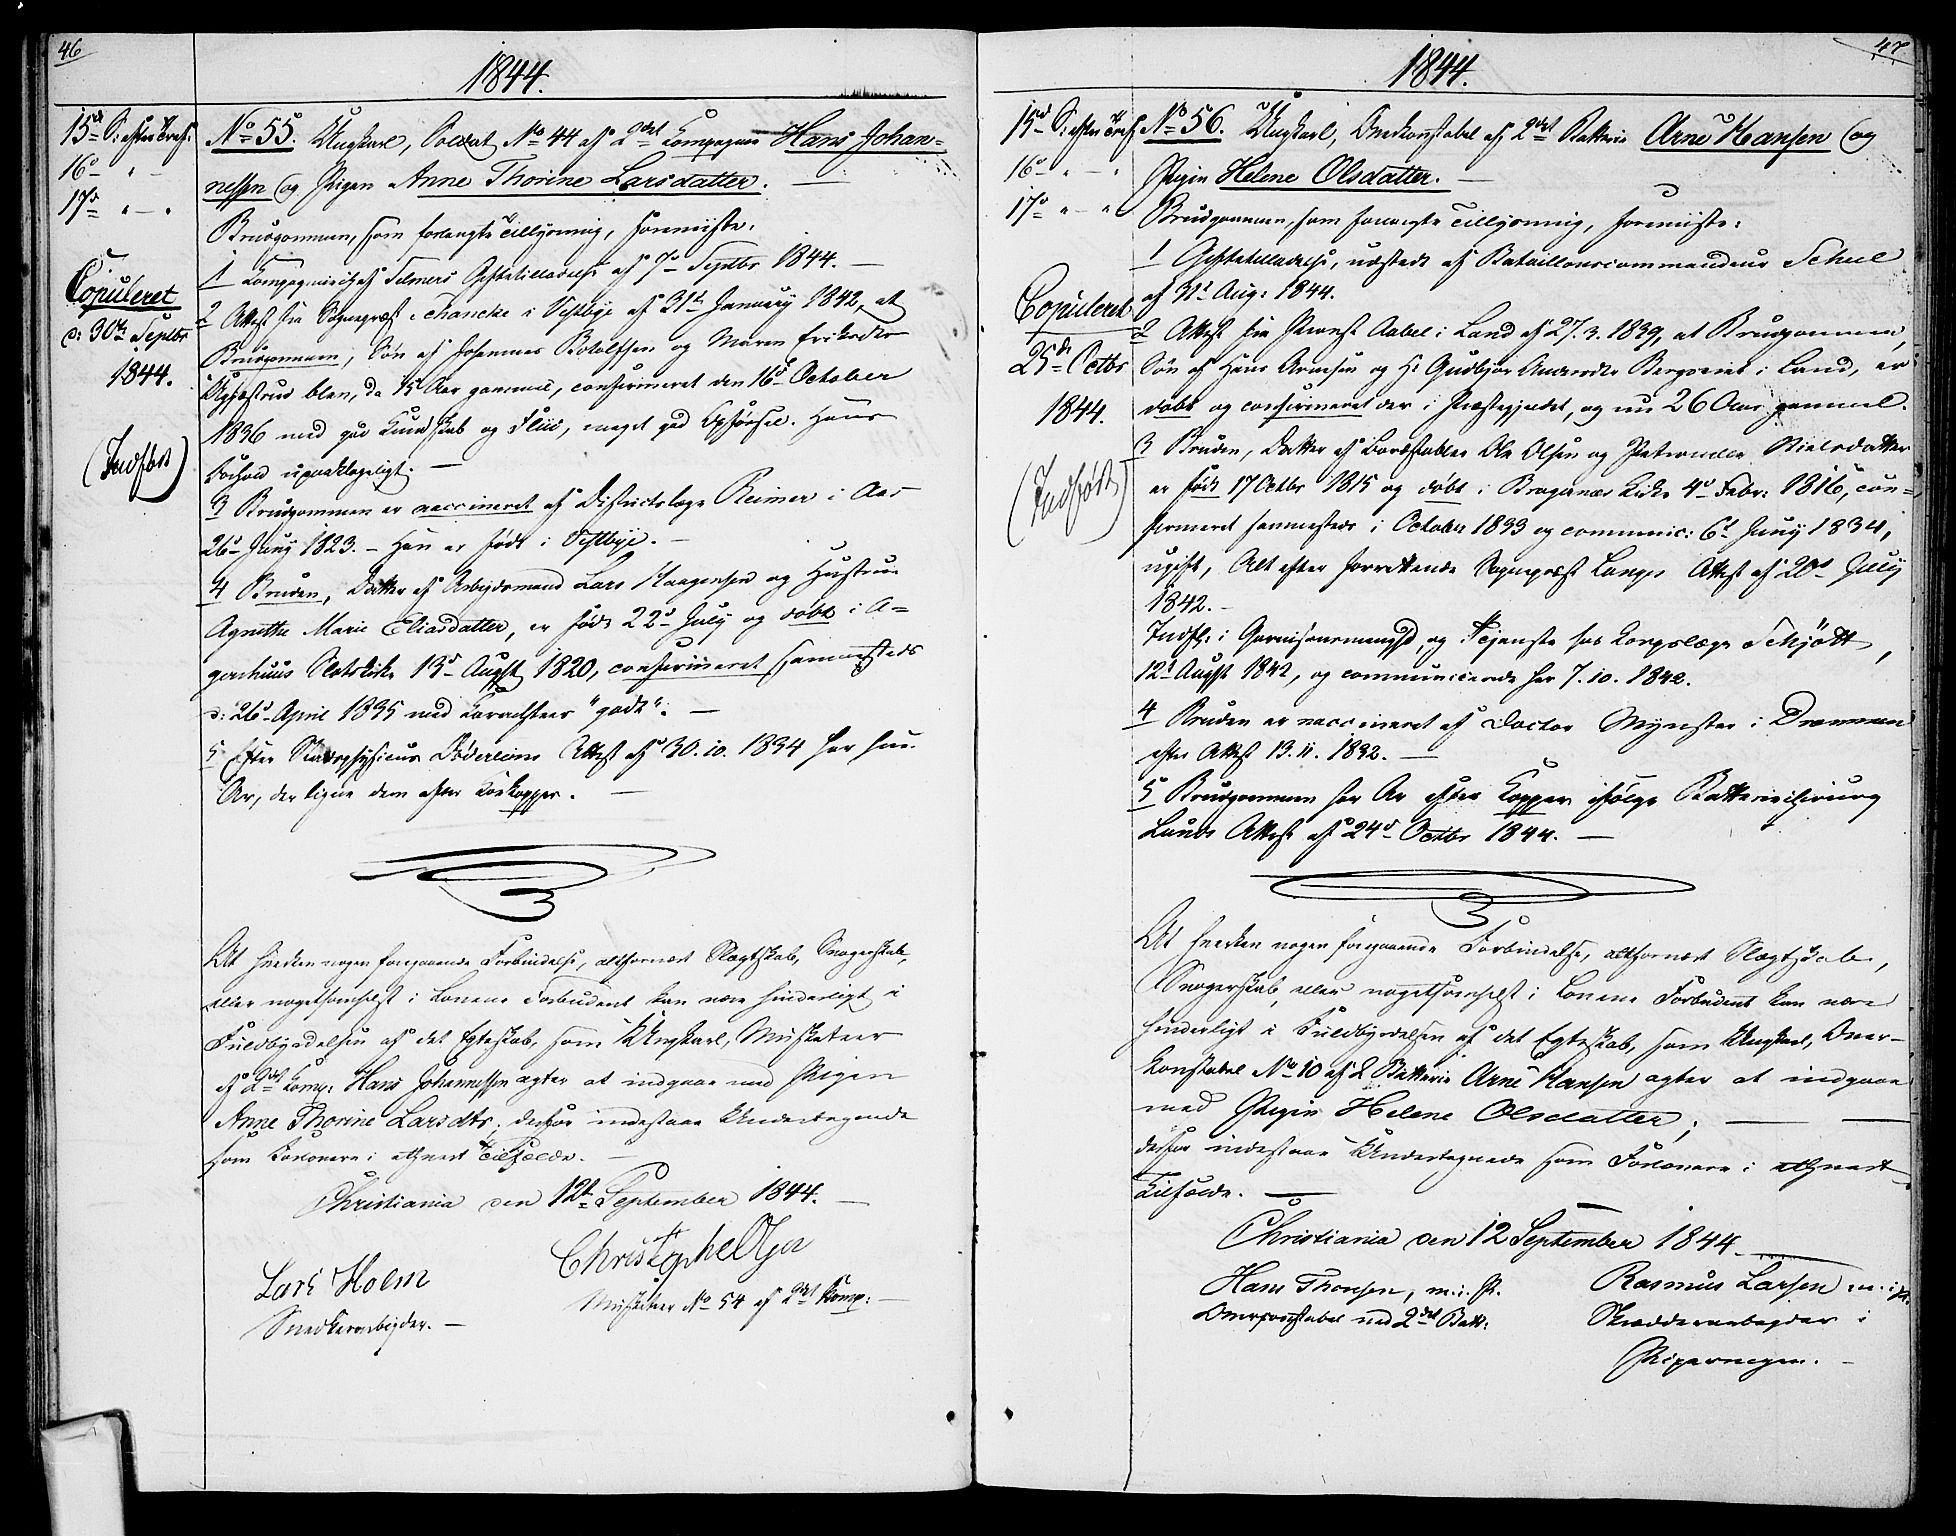 46
1844.
15de S: efter Tref:
16de " –
17de " – "
Copuleret
d: 30te Septbr
1844.
(Indført)
No 55. Ungkarl, Soldat No 44 af 2det Kompagnie Hans Johan=
nessen og Pigen Anne Thorine Larsdatter. —
Brudgommen, som forlangte Tillysning, foreviiste:
1 Kompagnichef Giftetilladelse af 7de Septbr 1844. —
2 Attest fra Sognepræst Schancke i Vestbye af 31te January 1842, at
Brudgommen, Søn af Johannes Botolfsen og Maren Eriksdtr
blev, da 15 Aar gammel, confirmeret den 16de October
1836 med god Kundskab og Fliid, meget god Opførsel. Hans
Forhold upaaklageligt. —
3 Brudgommen er vaccineret af Districtslæge Reimer i Aas
26de Juny 1823. – Han er født i Vestbye. –
4 Bruden, Datter af Arbejdsmand Lars Haagensen og Hustrue
Agnethe Marie Eliasdatter, er født 22de July og døbt i A=
gershuus Slotskirke 13de Augst 1820, confirmeret sammesteds
d: 26de April 1835 med Karakteer "godt". —
5 Efter Stadsphysicus Døderleins Attest af 30.10.1834 har hun
Ar, der ligne dem efter Kokopper. —
At hverken nogen foregaaende Forbindelse, altfornært Slægtskab, Svogerskab,
eller nogetsomhelst i Lovene Forbudent kan være hinderligt i
Fuldbyrdelsen af det Egteskab, som Ungkarl, Musketeer
af 2det Komp: Hans Johannessen agter at indgaae med Pigen
Anne Thorine Larsdtr, derfor indestaae Undertegnede
som Forlovere i ethvert Tilfælde. —
Christiania den 12te September 1844. —
Lars Holm
Snedkerarbejder. —
Christophel
Musketeer No 54 af 2det Komp: —
47
1844.
15de S: efter Tref
16de " – "
17de " – "
Copuleret
25de Octbr
1844.
(Indført)
No 56. Ungkarl, Overkonstabel af 2det Batterie Arne Hansen og
Pigen Helene Olsdatter. —
Brudgommen, som forlangte Tillysning, foreviiste:
1 Giftetilladelse, udstedt af Bataillonscommandeur Scheel
af 31te Aug: 1844.
2 Attest fra Provst Aabel i Land af 27.3.1839, at Brudgommen,
Søn af Hans Arnesen og H: Gudbjør i Land, er
døbt og confirmeret der i Præstegjeldet, og nu 26 Aar gammel.
3 Bruden, Datter af Bordstabler Ole Olsen og Petronelle Nielsdatter
er født 17 Octbr 1815 og døbt i Bragernæs Kirke 4de Febr: 1816, con=
firmeret sammesteds i October 1833 og communic: 6te Juny 1834,
ugift, Alt efter forrettende Sognepræst Langes Attest af 20de July
1842. –
Indfl: i Garnisonsmenighd, og Tjeneste hos Korpslæge Schjøtt,
12te Augst 1842, og communicerede her 7.10.1842.
4 Bruden er vaccineret af Doctor Mynster i Drammen
efter Attest 13.11.1832. —
5 Brudgommen har Ar efter Kopper ifølge Batteriechirurg
Lunds Attest af 24de Octbr 1844. —
At hverken nogen foregaaende Forbindelse, altfornært Slægtskab,
Svogerskab, eller nogetsomhelst i Lovene Forbudent kan være
hinderligt i Fuldbyrdelsen af det Egteskab, som Ungkarl, Over-
konstabel No 10 af 2 Batterie Arne Hansen agter at indgaae
med Pigen Helene Olsdatter; —
derfor indestaae Undertegnede som Forlovere i ethvert
Tilfælde. —
Christiania den 12 September 1844. —
Hans Thoresen, m. i. P.
Overconstabel ved 2det Batt:
Rasmus Larsen m. i. P.
Skrædderarbejder i
Pipervigen. –